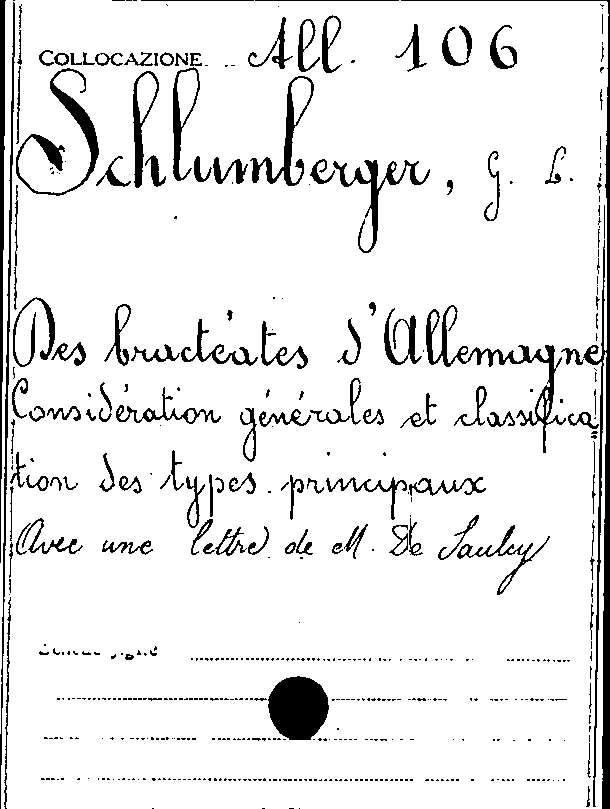 COLLOCAZIONE All. 106
Schlumberger, G. L.
Des bractéates d'Allemagne
Considération générales et classifica
tion des types principaux
Avec une lettre de M. De Saulcy